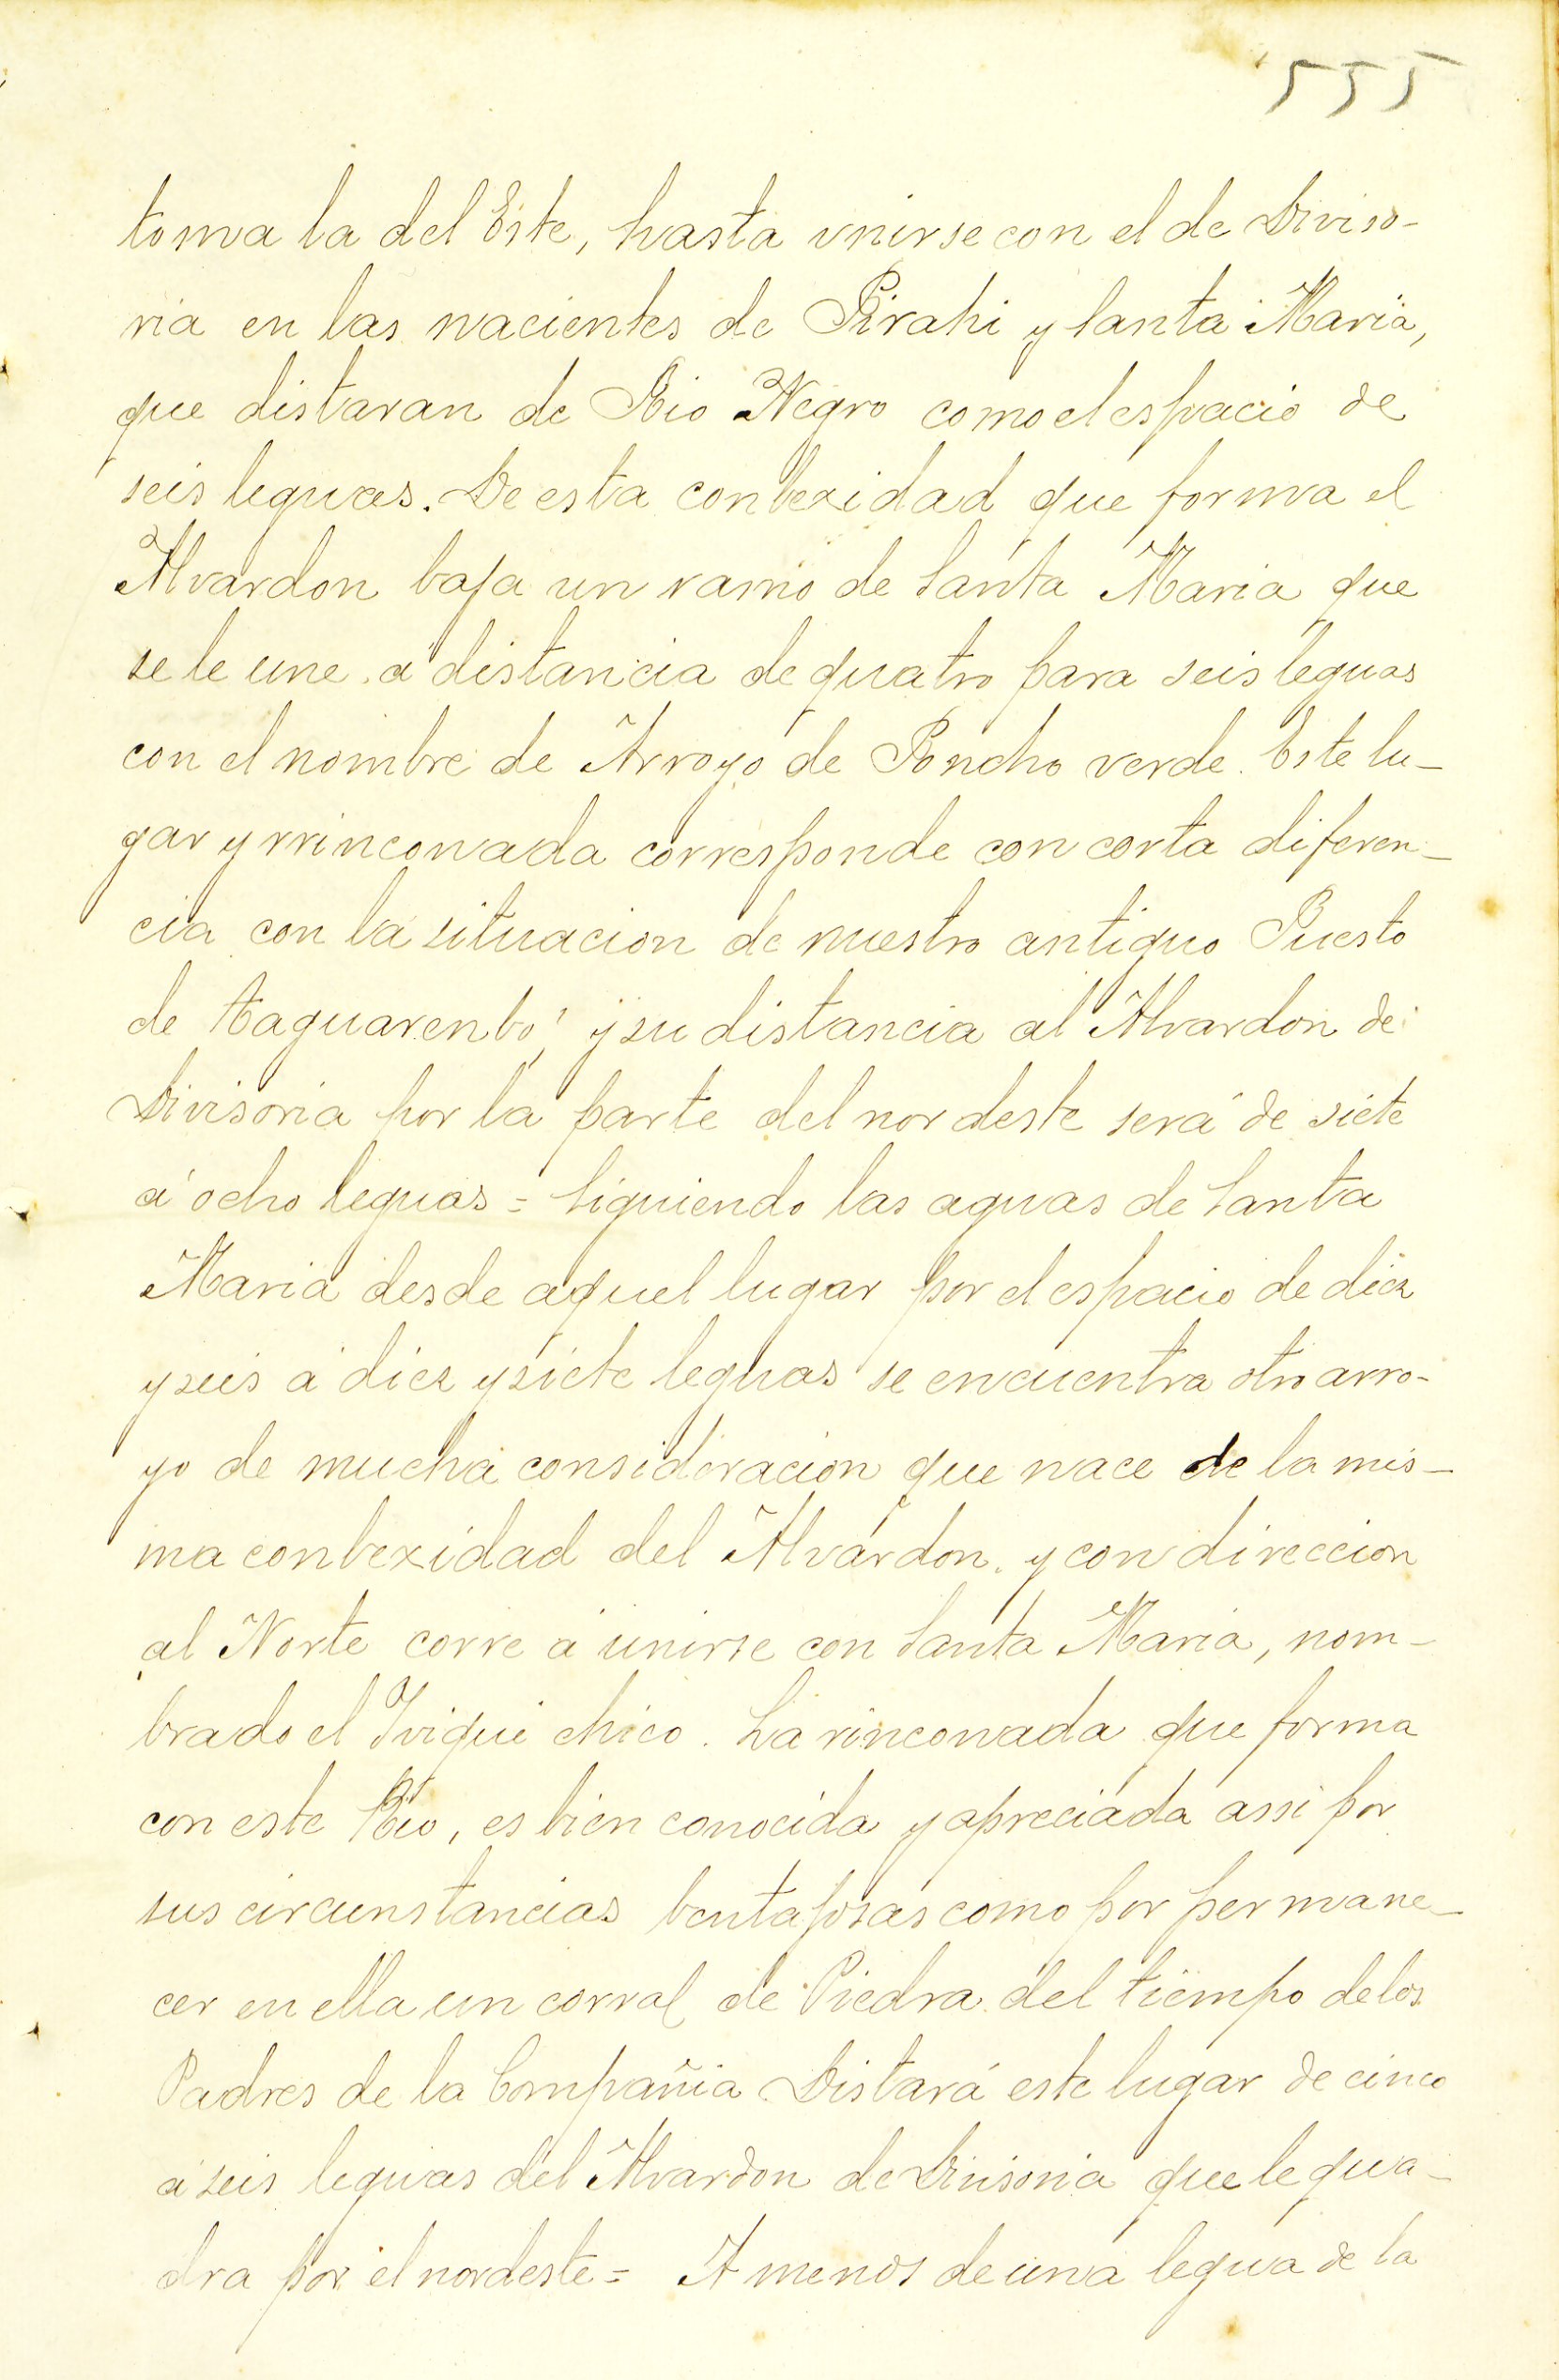 555
toma la del Este, hasta unirse con el de Diviso-
ria en las nacientes de Pirahi y Santa Maria,
que distaran de Rio Negro como el espacio de
seis leguas. De esta conbexidad que forma el
Alvardon baja un ramo de Santa Maria que
se le une á distancia de quatro para seis leguas
con el nombre de Arroyo de Poncho verde. Este lu-
gar y rrinconada corresponde con corta diferen-
cia con la situacion de nuestro antiguo Puesto
de taquarenbó, y su distancia al Alvardon de
Divisoria por la parte del nordeste será de siete
á ocho leguas = Siguiendo las aguas de Santa
Maria desde aquel lugar por el espacio de diez
y seis á diez y siete leguas se encuentra otro arro-
yo de mucha consideracion que nace de la mis-
ma conbexidad del Alvardon y con direccion
al Norte corre á unirse con Santa Maria, nom-
brado el Iviqui chico. La rinconada que forma
con este Rio, es bien conocida y apreciada assi por
sus circunstancias bentajosas como por permane-
cer en ella un corral de Piedra del tiempo de los
Padres de la Compañia Distará este lugar de cinco
á seis leguas del Alvardon de Divisoria que le qua-
dra por el nordeste = A menos de una legua de la